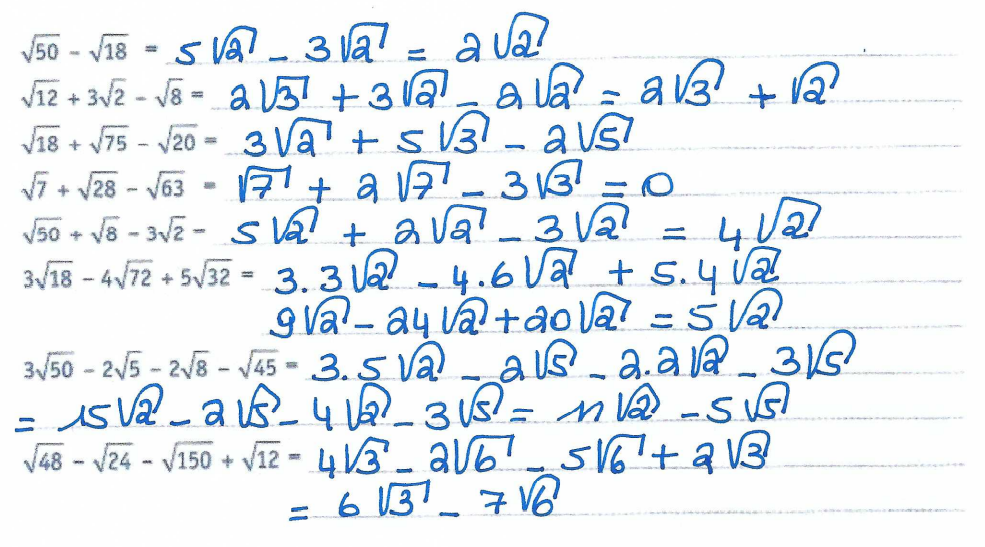 √50 - √18 = 5√2 - 3√2 = 2√2
√12 + 3√2 - √8 = 2√3 + 3√2 - 2√2 = 2√3 + √2
√18 + √75 - √20 = 3√2 + 5√3 - 2√5
√7 + √28 - √63 = √7 + 2√7 - 3√3 = 0
√50 + √8 - 3√2 - 5√2 + 2√2 - 3√2 = 4√2
3√18 - 4√72 + 5√32 = 3.3√2 - 4.6√2 + 5.4√2
9√2 - 24√2 + 20√2 = 5√2
3√50 - 2√5 - 2√8 - √45 = 3.5√2 - 2√5 - 2.2√2 - 3√5
= 15√2 - 2√5 - 4√2 - 3√5 = 11√2 - 5√5
√48 - √24 - √150 + √12 = 4√3 - 2√6 - 5√6 + 2√3
= 6√3 - 7√6